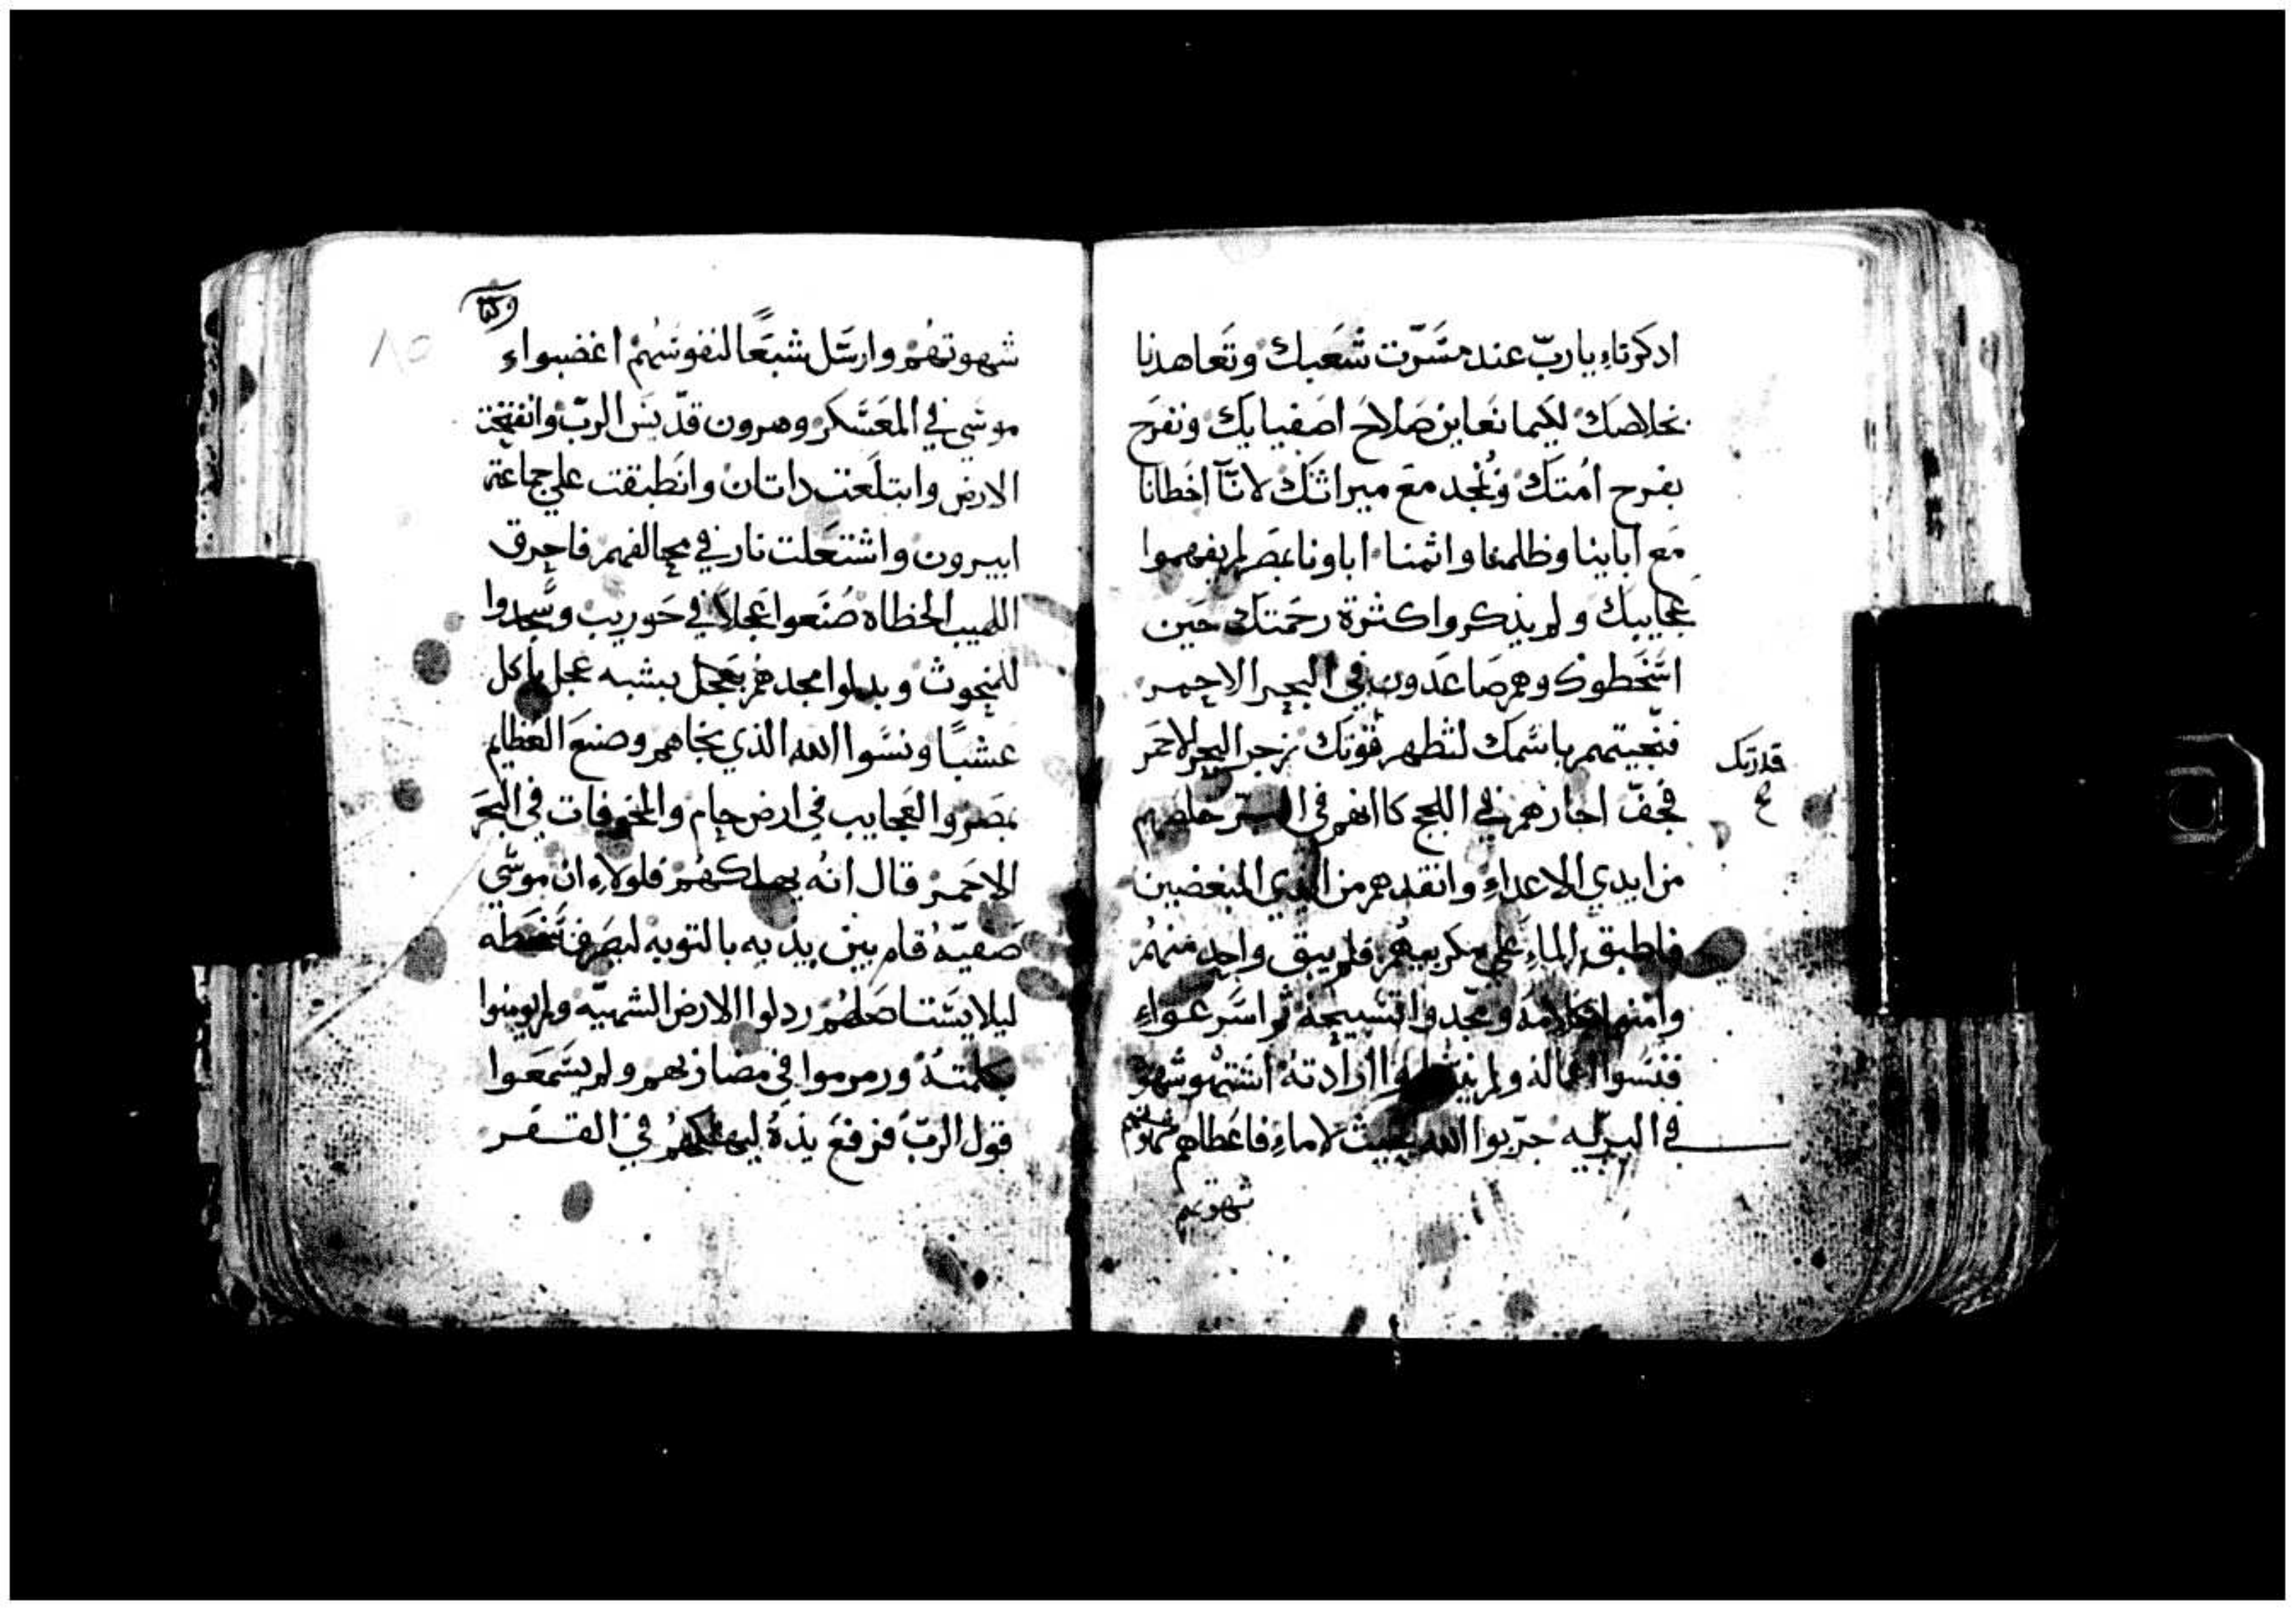 ادكرناء يا ربّ عند مسَرّت شعَبك وتعَاهدنا
بخلاصك لكيما نعَاين صَلاحَ اصَفيايك ونفرَح
بفرح امُتك ونُمجد معَ ميراثك لاننآ اخَطانا
معَ اباينا وظلمنا واثمنا اباونا بمصَر لم يفهموا
عجاييك ولم يذكروا كثرة رحَمتك حَين
اسَخَطوك وهم صَاعدون في البحر الاحمر
فنّجيتهم باسَمك لتظهر قوتك زجر البحر الاحمَر
قدرتك
فجفّ اجازهم في اللجج كاانهم في خلصهم
من ايدي الاعداءِ وانقدهم من ايدي المبغضين
فاطبق الماءِ علي فلم يبق واحد منهُم
وامنوا بكلامه ومجّدوا تسَبيحة ثم اسَرعواءِ
فنسَوا اعماله ولم ارادتهُ اشتهو شهوة
في البرّيه جرّبوا الله بحيث لا ماءِ فاعَطاهم
شهوتهم
شهوتهُم وارسَل شبعًا لنفوسَهُم اغضبواء
موسَي في المعَسَكر وهرون قدّيسَ الربّ وانفتحَت
الارض وابتلعَت داتان وانطبقت علي جماعَة
ابيرون واشتعَلت نار في محالفهم فاحرق
اللهيب الخطاه صُنعَوا عَجلاً في حَوريب وسَجدوا
للمنحوث وبدلوا مجدهم بعَجل يشبه عجل ياكل
عشبًا ونسَوا الله الذي نجاهم وصنعَ العَظايم
بمصَر والعَجايب في ارض حام والمخوفات في البحَر
الاحَمر قال انهُ يهلكهُم فلولاءِ ان موسَي
صَفيّهُ قام بين يديه بالتوبه ليصَرف سَخَطه
ليلا يسَتاصَلهُم ردلوا الارض الشهيّه ولم يومنوا
بكلمتهُ ورمرموا في مضاربهم ولم يسَمعَوا
قول الربّ فرفعَ يدهُ ليهلكهُم في القفر